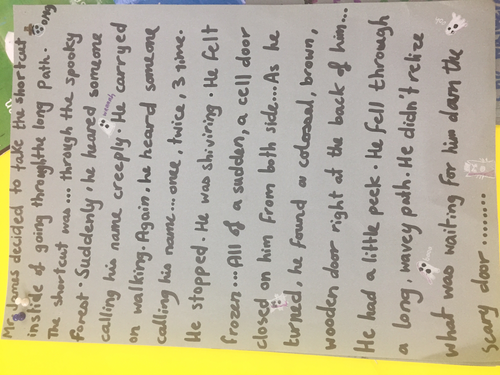 Mr. Jones decided to take the shortcut
instide of going throughthe long path.
The shortcut was... through the spooky
forest. Suddenly, he heared someone
calling his name creeply. He carryed
on walking. Again, he heard someone
calling his name... once, twice, 3 time.
He stopped. He was shiviring. He felt
frozen... All of a sudden, a cell door
closed on him from both side... As he
turned, he found a colossal, brown,
wooden door right at the back of him...
He had a little peek. He fell through
a long, wavey path. He didn't relize
what was waiting for him dawn the
scary door........